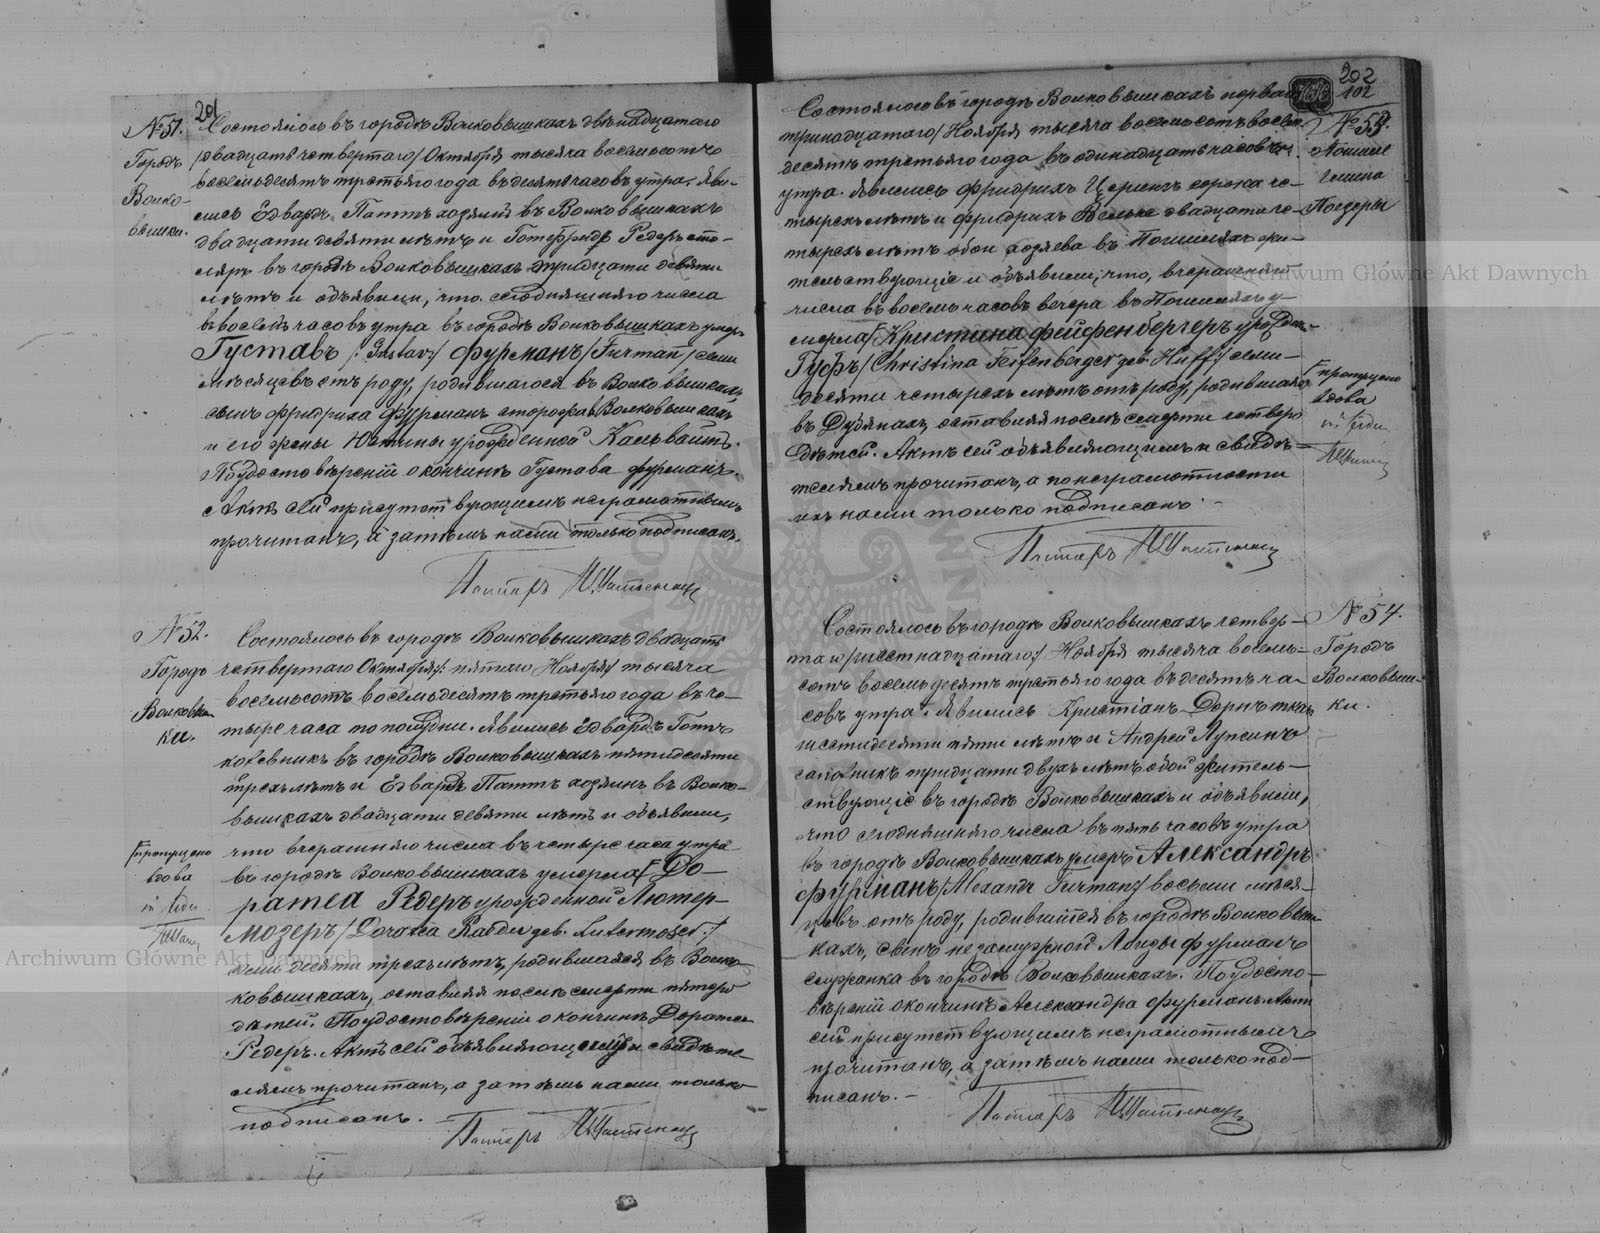 201
№ 51.
Городъ
Волко-
вышки.
Состоялось въ городѣ Волковышкахъ двѣнадцатаго
/двадцать четвертаго/ Октября тысяча восемьсотъ
восемьдесятъ третьяго года въ десять часовъ утра. Яви-
лись Едвардъ Паттъ хозяинъ въ Волковышкахъ
двадцати девяти лѣтъ и Готфридъ Редеръ сто-
ляръ въ городѣ Волковышкахъ тридцати девяти
лѣтъ и объявили, что сегодняшняго числа
въ восемь часовъ утра въ городѣ Волковышкахъ умеръ
Густавъ /:Gustav:/ Фурманъ /Furman/ семи
мѣсяцевъ отъ роду, родившагося въ Волковышкахъ,
сынъ Фридриха Фурманъ сторожа въ Волковышкахъ
и его жены урожденной Кальвайтъ.
По удостовѣреніи о кончинѣ Густава Фурманъ.
Актъ сей присутствующимъ неграмотнымъ
прочитанъ, а затѣмъ нами только подписанъ.
Пасторъ
№ 52.
Городъ
Волковыш-
ки.
Состоялось въ городѣ Волковышкахъ двадцать
четвертаго Октября /: пятаго Ноября :/ тысяча
восемьсотъ восемьдесятъ третьяго года въ че-
тыре часа по полудни. Явились Едвардъ Готъ
въ городѣ Волковышкахъ пятидесяти
трехъ лѣтъ и Едвардъ Паттъ хозяинъ въ Волко-
вышкахъ двадцати девяти лѣтъ и объявили,
что вчерашняго числа въ четыре часа утра
въ городѣ Волковышкахъ умерла До-
ратеа Редеръ урожденной Лютер-
мозеръ /Doratea Raeder geb. Lutermoser:/
семидесяти трехъ лѣтъ, родившаяся въ Волко-
ковышкахъ, оставляя послѣ смерти пятеро
дѣтей. По удостовѣреніи о кончинѣ Доратеа
Редеръ. Актъ сей объявляющимъ и свидѣте-
лямъ прочитанъ, а затѣмъ нами только
подписанъ.
Пасторъ
пропущено
вдова
202
102
Состоялось въ городѣ Волковышкахъ перваго
/тринадцатаго/ Ноября тысяча восемьсотъ восемь-
десятъ третьяго года въ одинадцать часовъ
утра. Явились Фридрихъ сорока че-
тырехъ лѣтъ и Фридрихъ двадцати че-
тырехъ лѣтъ обои хозяева въ жи-
тельствующіе и объявили, что, вчерашняго
числа въ восемь часовъ вечера въ у-
мерла Кристина Фейфенбергеръ урожд.
Гуфъ /Christina Feifenberger geb. Huff/ семи-
десяти четырехъ лѣтъ отъ роду, родившаяся
въ оставляя послѣ смерти четверо
дѣтей. Актъ сей объявляющимъ и свидѣ-
телямъ прочитанъ, а по неграмотности
ихъ нами только подписанъ.
Пасторъ
№ 53.
Гмина
пропущено
вдова
Состоялось въ городѣ Волковышкахъ четвер-
таго /шестнадцатаго:/ Ноября тысяча восемь-
сотъ восемьдесятъ третьяго года въ десять ча-
совъ утра. Явились Кристіанъ Дорнъ ткачъ
шестидесяти пяти лѣтъ и Андрей
сапожникъ тридцати двухъ лѣтъ, обои житель-
ствующіе въ городѣ Волковышкахъ и объявили,
что сегодняшняго числа въ пять часовъ утра
въ городѣ Волковышкахъ умеръ Александръ
Фурманъ /Alexandr Furman:/ восьми мѣся-
цевъ отъ роду, родившійся въ городѣ Волковыш-
кахъ, сынъ незамужной Фурманъ
служанка въ городѣ Волковышкахъ. По удосто-
вѣреніи о кончинѣ Александра Фурманъ. Актъ
сей присутствующимъ неграмотнымъ
прочитанъ, а затѣмъ нами только под-
писанъ.
Пасторъ
№ 54.
Городъ
Волковыш-
ки.
Archiwum Główne Akt Dawnych
Archiwum Główne Akt Dawnych